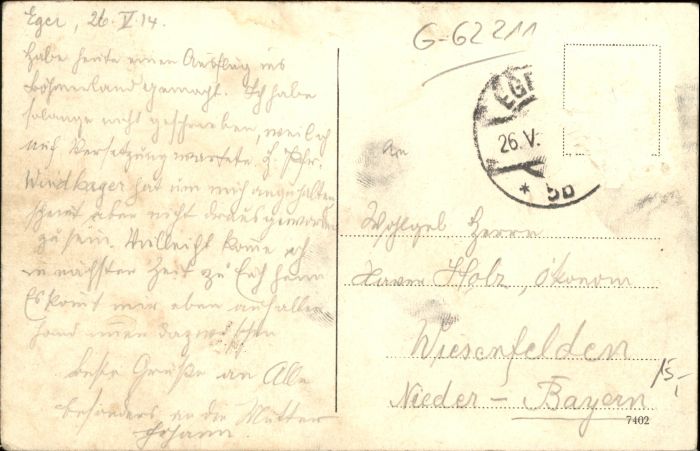 Eger, 26.V.14.
Habe heute einen Ausflug ins
Böhmenland gemacht. Ich habe
solange nicht geschrieben, weil ich
auf Versetzung wartete. H. Pfr.
Windhager hat um mich angehalten
scheint aber nicht draus geworden
zu sein. Villeicht kome ich
in nächster Zeit zu Euch heim
Es komt mir eben auf alle
hand dazwischen
beste Grüße an Alle
besonders an die Mutter
Johann.
G-62211
EGE
26.V.
* 5b
An
Wohlgeb Herrn
Xaver Holz, Ökonom
Wiesenfelden
Nieder-Bayern
15,-
7402